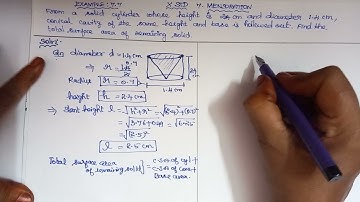 EXAMPLE 7.7 X STD 7. MENSURATION
From a solid cylinder whose height is 2.4 cm and diameter 1.4 cm,
conical cavity of the same height and base is hollowed out. Find the
total surface area of remaining solid.
Soln:
diameter d = 1.4 cm
⇒ r = 1.4/2 0.7
Radius r = 0.7
height h = 2.4 cm
1.4 cm
Slant height l = √h²+r² = √(2.4)²+(0.7)²
= √5.76+0.49 = √6.25
= √(2.5)²
l = 2.5 cm
Total surface area of remaining solid = C.S.A of cyl +
C.S.A of cone +
Base area